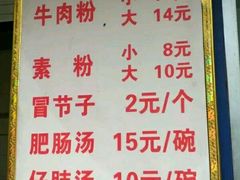 牛肉粉 小
大 14元
素粉 小 8元
大 10元
冒节子 2元/个
肥肠汤 15元/碗